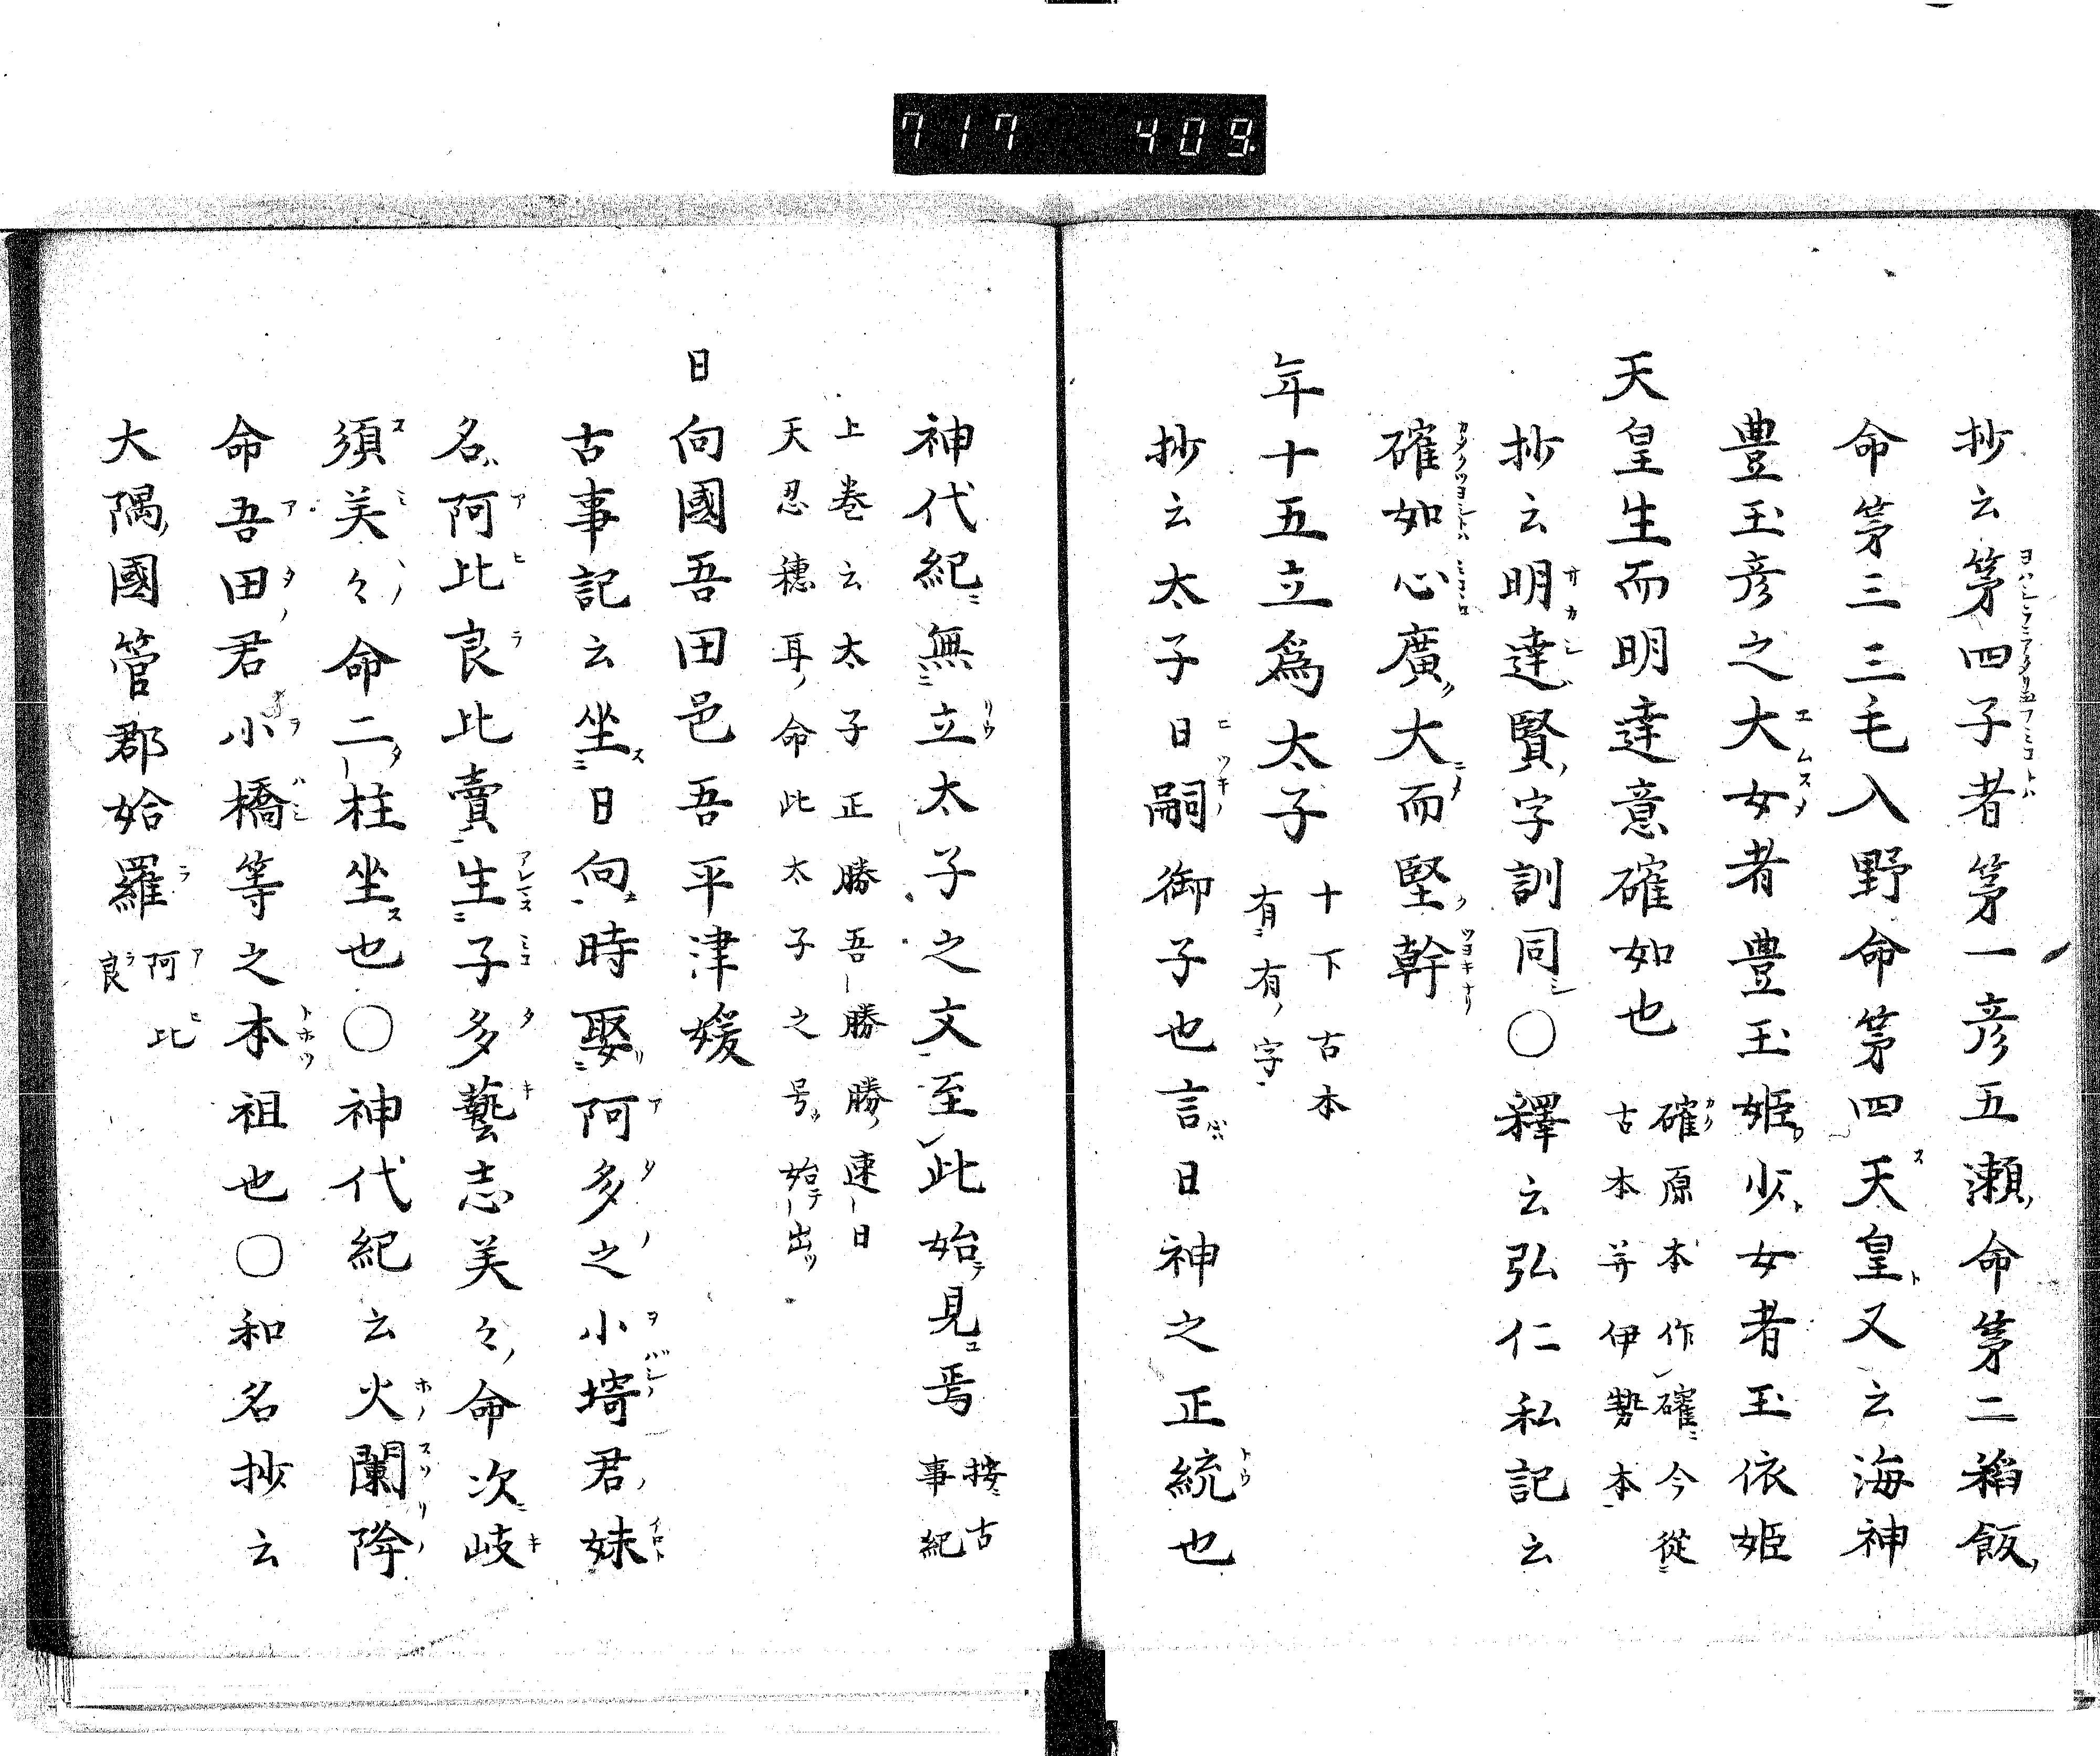 717 409
抄云第四子者第一彦五瀬命第二稻飯
命第三三毛入野命第四天皇又云海神
豊玉彦之大女者豊玉姫少女者玉依姫
天皇生而明達意確如也
確原本作確今從
古本并伊勢本
抄云明達賢字訓同〇釋云弘仁私記云
確如心廣大而堅幹
年十五立爲太子
十下古本
有有字
抄云太子日嗣御子也言日神之正統也
神代紀無立太子之文至此始見焉
按古
事紀
上巻云太子正勝吾勝勝速日
天忍穗耳命此太子之号始出
日向國吾田邑吾平津媛
古事記云坐日向時娶阿多之小埼君妹
名阿比良比賣生子多藝志美々命次岐
須美々命二柱坐也〇神代紀云火闌降
命吾田君小橋等之本祖也〇和名抄云
大隅國管郡姶羅
阿比
良